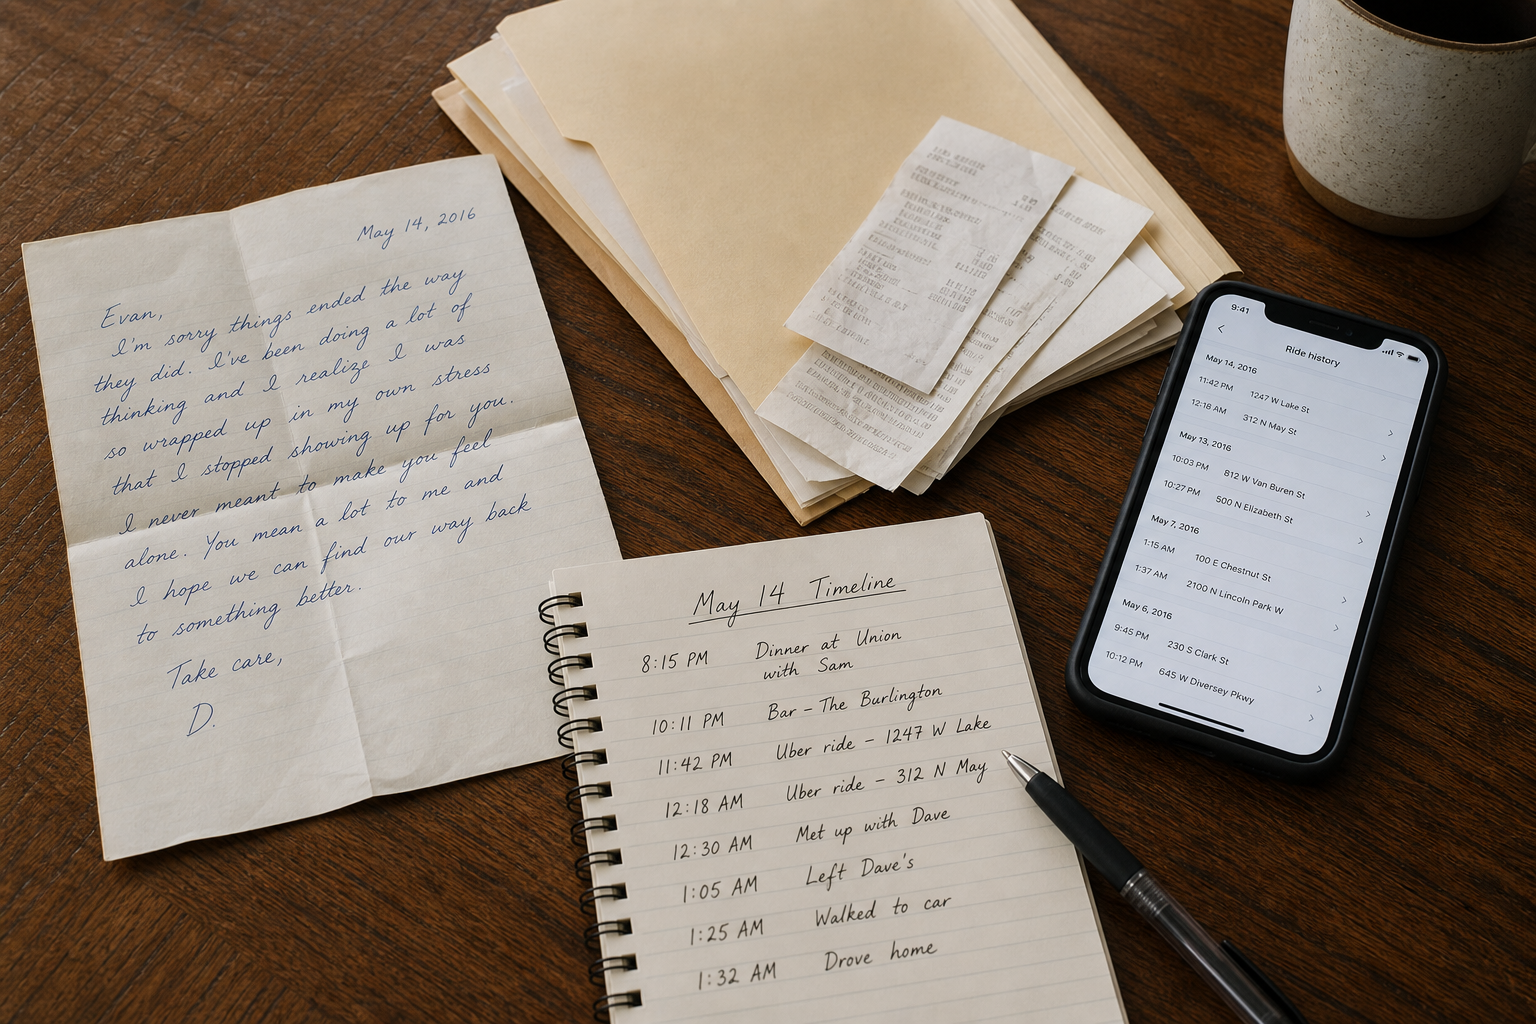 May 14, 2016
Evan,
I'm sorry things ended the way
they did. I've been doing a lot of
thinking and I realize I was
so wrapped up in my own stress
that I stopped showing up for you.
I never meant to make you feel
alone. You mean a lot to me and
I hope we can find our way back
to something better.
Take care,
D.
May 14 Timeline
8:15 PM Dinner at Union
with Sam
10:11 PM Bar – The Burlington
11:42 PM Uber ride – 1247 W Lake
12:18 AM Uber ride – 312 N May
12:30 AM Met up with Dave
1:05 AM Left Dave's
1:25 AM Walked to car
1:32 AM Drove home
9:41
Ride history
May 14, 2016
11:42 PM 1247 W Lake St
12:18 AM 312 N May St
May 13, 2016
10:03 PM 812 W Van Buren St
10:27 PM 500 N Elizabeth St
May 7, 2016
1:15 AM 100 E Chestnut St
1:37 AM 2100 N Lincoln Park W
May 6, 2016
9:45 PM 230 S Clark St
10:12 PM 645 W Diversey Pkwy